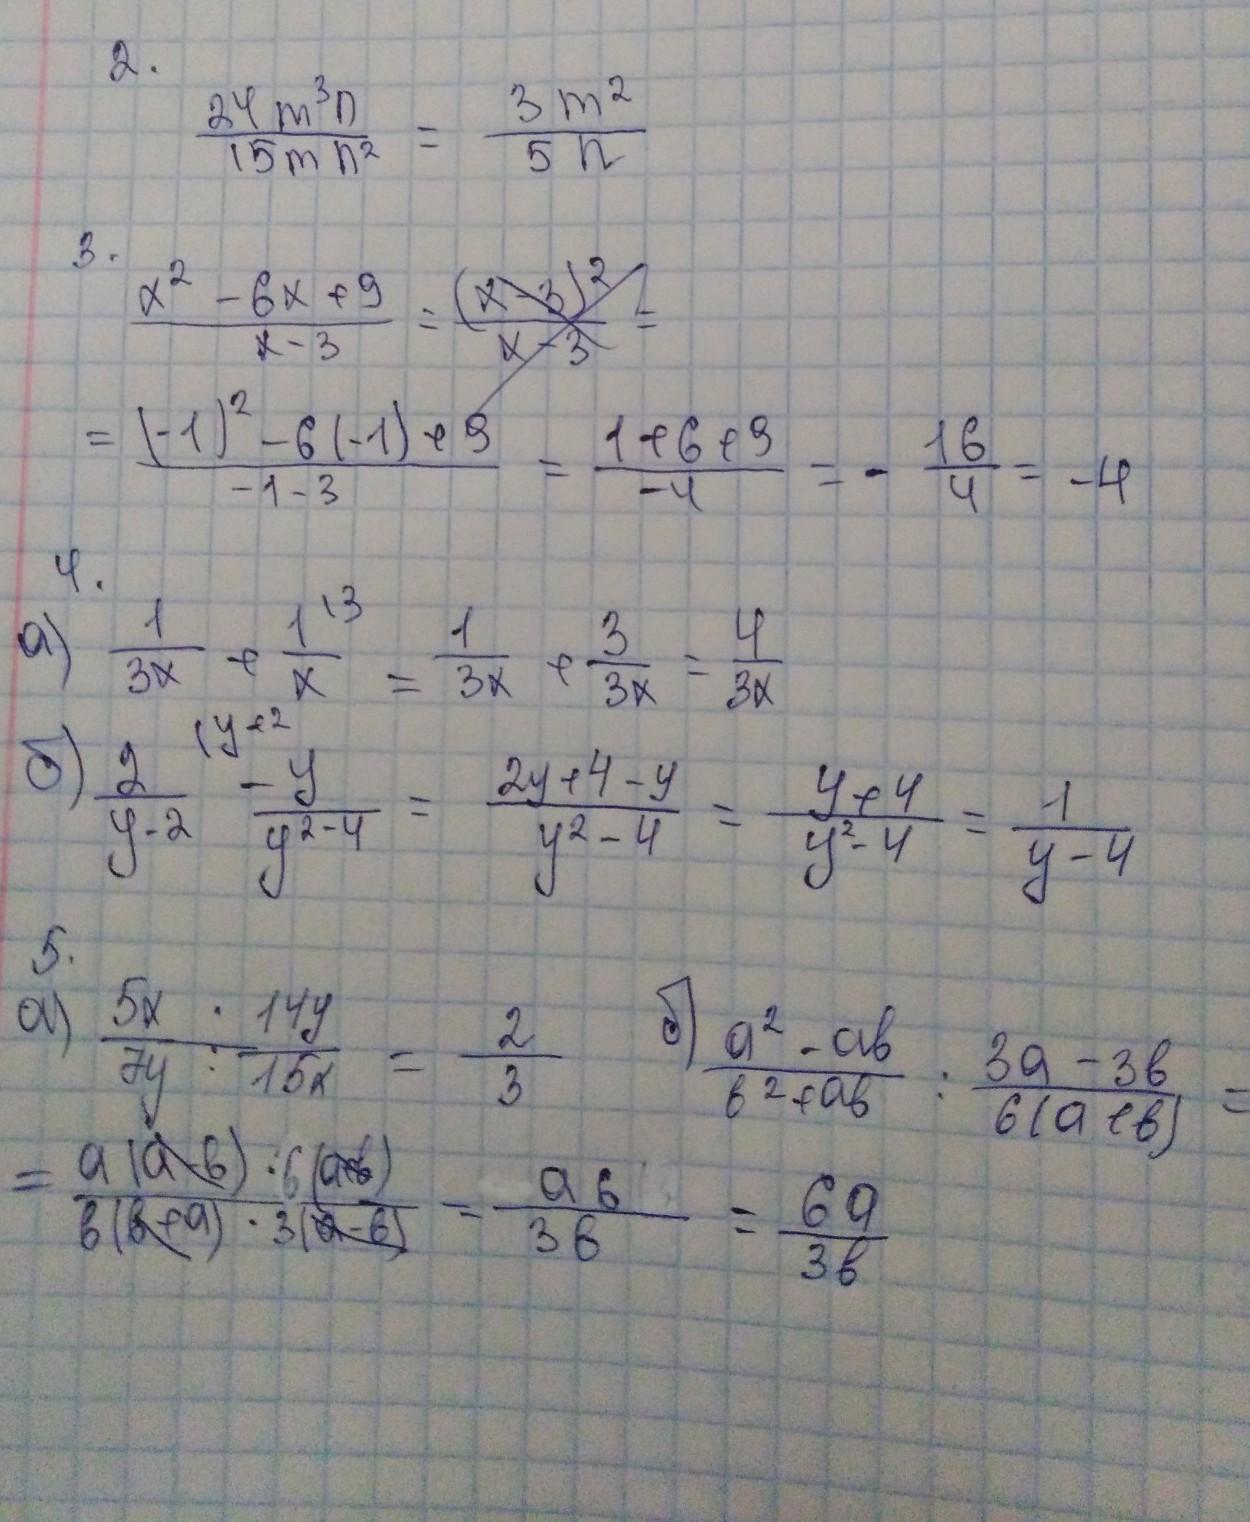 2.
24m³n / 15mn² = 3m² / 5n
3.
x² - 6x + 9 / x - 3 = (x - 3)² / x - 3 =
= (-1)² - 6(-1) + 9 / -1 - 3 = 1 + 6 + 9 / -4 = - 16 / 4 = -4
4.
а) 1 / 3x + 1 \3 / x = 1 / 3x + 3 / 3x = 4 / 3x
б) 2 \y+2 / y - 2 - y / y² - 4 = 2y + 4 - y / y² - 4 = y + 4 / y² - 4 = 1 / y - 4
5.
а) 5x / 7y · 14y / 15x = 2 / 3 б) a² - ab / b² + ab : 3a - 3b / 6(a + b) =
= a(a - b) · 6(a+b) / b(b + a) · 3(a - b) = a6 / 3b = 6a / 3b